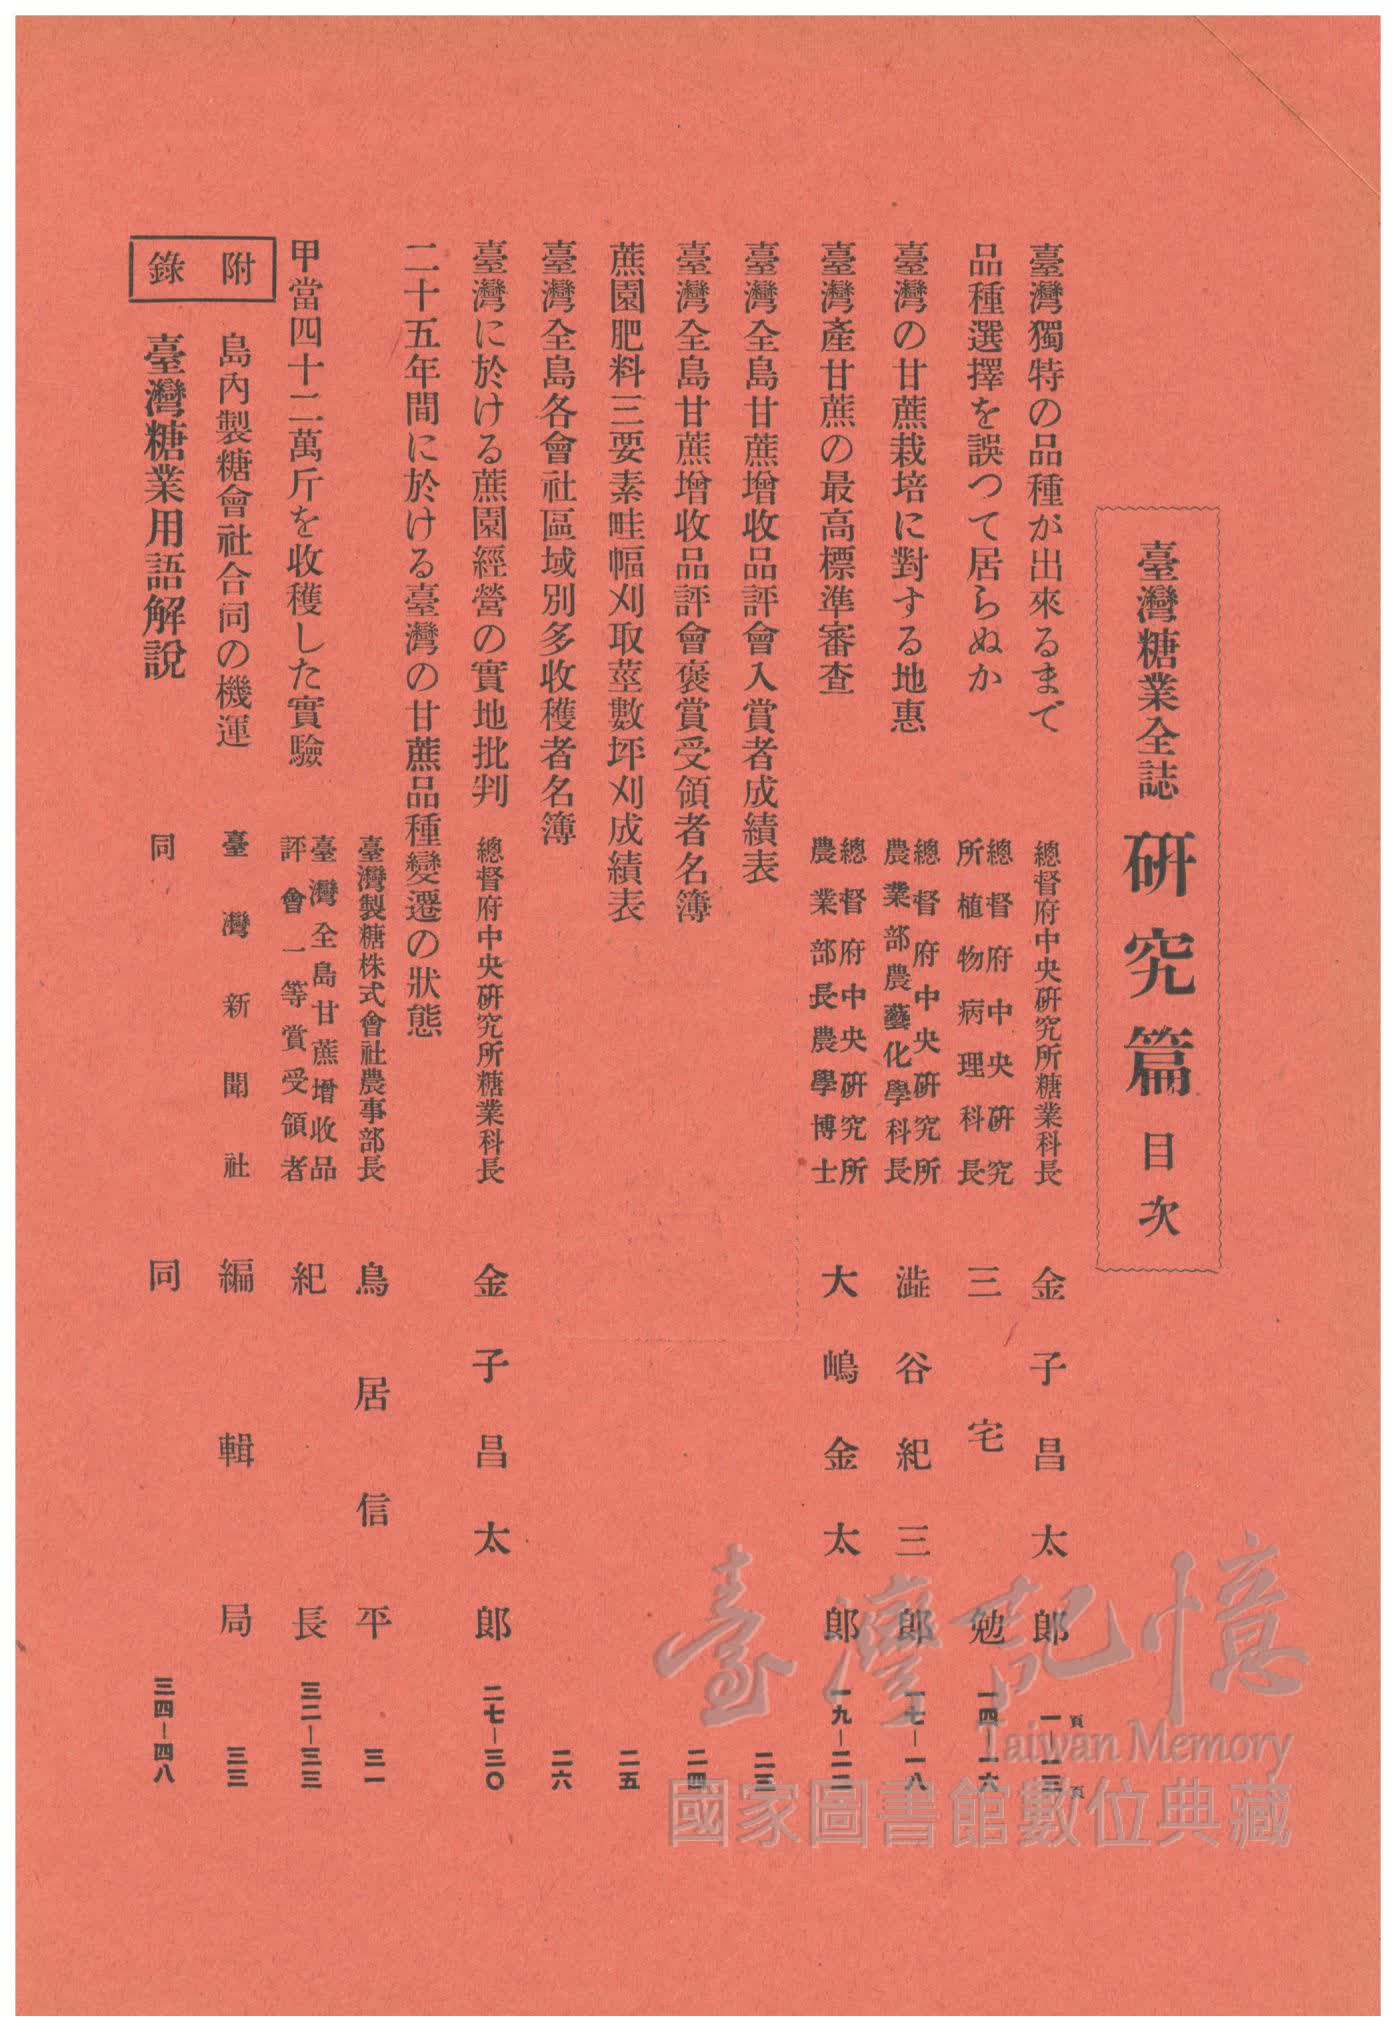 臺灣糖業全誌 硏究篇 目次
臺灣獨特の品種が出來るまで 總督府中央硏究所糖業科長 金子昌太郎 一頁—一三頁
品種選擇を誤つて居らぬか 總督府中央硏究所植物病理科長 三宅勉 一四—一六
臺灣の甘蔗栽培に對する地惠 總督府中央硏究所農業部農藝化學科長 澁谷紀三郎 一七—一八
臺灣產甘蔗の最高標準審查 總督府中央硏究所農業部長農學博士 大嶋金太郎 一九—二二
臺灣全島甘蔗增收品評會入賞者成績表 二三
臺灣全島甘蔗增收品評會褒賞受領者名簿 二四
蔗園肥料三要素畦幅刈取莖數坪刈成績表 二五
臺灣全島各會社區域別多收穫者名簿 二六
臺灣に於ける蔗園經營の實地批判 總督府中央硏究所糖業科長 金子昌太郎 二七—三〇
二十五年間に於ける臺灣の甘蔗品種變遷の狀態
臺灣製糖株式會社農事部長 鳥居信平 三一
甲當四十二萬斤を收穫した實驗 臺灣全島甘蔗增收品評會一等賞受領者 紀長 三二—三三
附錄
島內製糖會社合同の機運 臺灣新聞社 編輯局 三三
臺灣糖業用語解說 同 同 三四—四八
臺灣記憶
Taiwan Memory
國家圖書館數位典藏